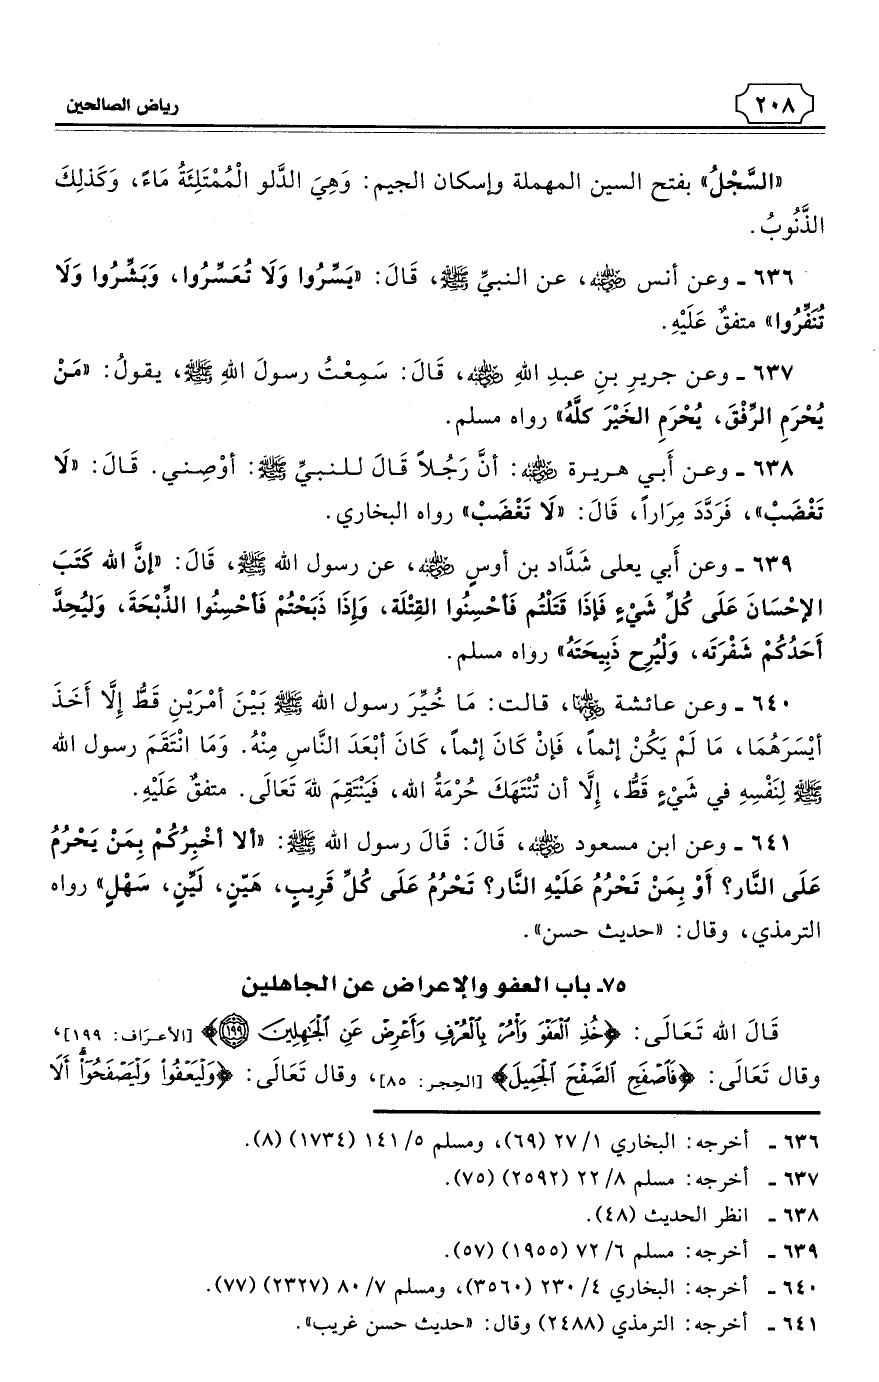 ٢٠٨ رياض الصالحين
«السَّجْلُ» بفتح السين المهملة وإسكان الجيم: وَهِيَ الدَّلو الْمُمْتَلِئَةُ مَاءً، وَكَذلِكَ
الذَّنُوبُ.
٦٣٦ ـ وعن أنس رضي الله عنه، عن النبيِّ ﷺ، قَالَ: «يَسِّرُوا وَلَا تُعَسِّرُوا، وَبَشِّرُوا وَلَا
تُنَفِّرُوا» متفقٌ عَلَيْهِ.
٦٣٧ ـ وعن جريرِ بنِ عبدِ اللهِ رضي الله عنه، قَالَ: سَمِعْتُ رسولَ اللهِ ﷺ، يقولُ: «مَنْ
يُحْرَمِ الرِّفْقَ، يُحْرَمِ الخَيْرَ كلَّهُ» رواه مسلم.
٦٣٨ ـ وعن أَبي هريرة رضي الله عنه: أنَّ رَجُلاً قَالَ للنبيِّ ﷺ: أوْصِني. قَالَ: «لَا
تَغْضَبْ»، فَرَدَّدَ مِرَاراً، قَالَ: «لَا تَغْضَبْ» رواه البخاري.
٦٣٩ ـ وعن أَبي يعلى شَدَّاد بن أوسٍ رضي الله عنه، عن رسول الله ﷺ، قَالَ: «إنَّ الله كَتَبَ
الإحْسَانَ عَلَى كُلِّ شَيْءٍ فَإذَا قَتَلْتُم فَأحْسِنُوا القِتْلَة، وَإِذَا ذَبَحْتُمْ فَأحْسِنُوا الذِّبْحَةَ، وَليُحِدَّ
أَحَدُكُمْ شَفْرَتَه، وَلْيُرِح ذَبِيحَتَهُ» رواه مسلم.
٦٤٠ ـ وعن عائشة رضي الله عنها، قالت: مَا خُيِّرَ رسول الله ﷺ بَيْنَ أمْرَيْنِ قَطُّ إلَّا أَخَذَ
أيْسَرَهُمَا، مَا لَمْ يَكُنْ إثماً، فَإنْ كَانَ إثماً، كَانَ أبْعَدَ النَّاسِ مِنْهُ. وَمَا انْتَقَمَ رسول الله
ﷺ لِنَفْسِهِ في شَيْءٍ قَطُّ، إلَّا أن تُنْتَهَكَ حُرْمَةُ الله، فَيَنْتَقِمَ للهَ تَعَالَى. متفقٌ عَلَيْهِ.
٦٤١ ـ وعن ابن مسعود رضي الله عنه، قَالَ: قَالَ رسول الله ﷺ: «ألا أخْبِرُكُمْ بِمَنْ يَحْرُمُ
عَلَى النَّار؟ أَوْ بِمَنْ تَحْرُمُ عَلَيْهِ النَّار؟ تَحْرُمُ عَلَى كُلِّ قَرِيبٍ، هَيّنٍ، لَيِّنٍ، سَهْلٍ» رواه
الترمذي، وقال: «حديث حسن».
٧٥ـ باب العفو والإعراض عن الجاهلين
قَالَ الله تَعَالَى: ﴿خُذِ الْعَفْوَ وَأْمُرْ بِالْعُرْفِ وَأَعْرِضْ عَنِ الْجَاهِلِينَ ١٩٩﴾ [الأعرَاف: ١٩٩]،
وقال تَعَالَى: ﴿فَاصْفَحِ الصَّفْحَ الْجَمِيلَ﴾ [الحِجر: ٨٥]، وقال تَعَالَى: ﴿وَلْيَعْفُوا وَلْيَصْفَحُوا أَلَا
٦٣٦ ـ أخرجه: البخاري ١/ ٢٧ (٦٩)، ومسلم ٥/ ١٤١ (١٧٣٤) (٨).
٦٣٧ ـ أخرجه: مسلم ٨/ ٢٢ (٢٥٩٢) (٧٥).
٦٣٨ ـ انظر الحديث (٤٨).
٦٣٩ ـ أخرجه: مسلم ٦/ ٧٢ (١٩٥٥) (٥٧).
٦٤٠ ـ أخرجه: البخاري ٤/ ٢٣٠ (٣٥٦٠)، ومسلم ٧/ ٨٠ (٢٣٢٧) (٧٧).
٦٤١ ـ أخرجه: الترمذي (٢٤٨٨) وقال: «حديث حسن غريب».